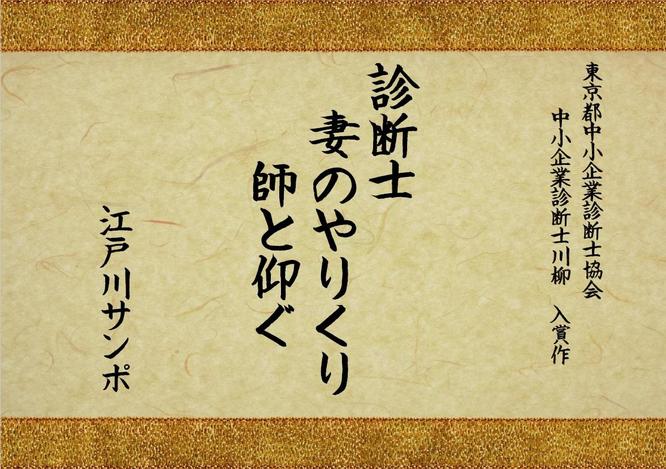 東京都中小企業診断士協会
中小企業診断士川柳　入賞作
診断士
妻のやりくり
師と仰ぐ
江戸川サンポ